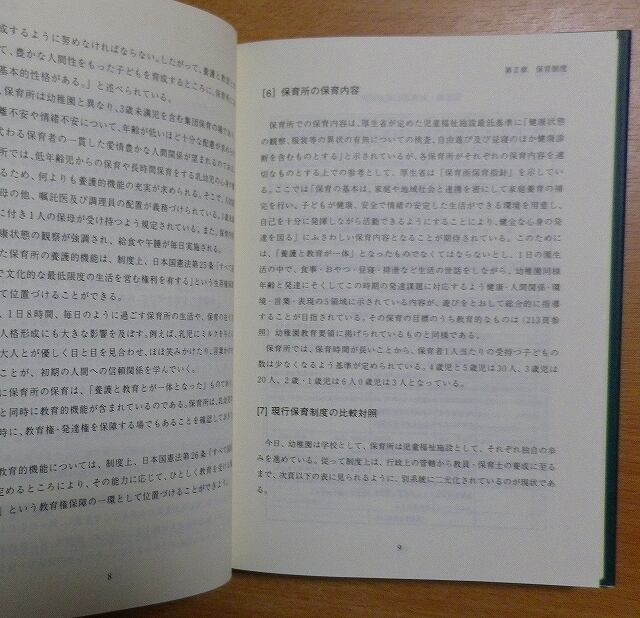 成するように努めなければならない。したがって、養護と教育と
て、豊かな人間性をもった子どもを育成するところに、保育所に
基本的性格がある。」と述べられている。
保育所は幼稚園と異なり、3歳未満児を含む集団保育の場であ
離不安や情緒不安について、年齢が低いほど十分な配慮が求め
代わる保育者の一貫した愛情豊かな人間関係が望まれるので
所では、低年齢児からの保育や長時間保育をする乳幼児の心身
るため、何よりも養護的機能の充実が求められる。そこで、人
母の他、嘱託医及び調理員の配置が義務づけられている。
に付き1人の保母が受け持つよう規定されている。また、保
康状態の観察が強調され、給食や午睡が毎日実施される。
た保育所の養護的機能は、制度上、日本国憲法第25条「すべて
で文化的な最低限度の生活を営む権利を有する」という生活権
て位置づけることができる。
、1日8時間、毎日のように過ごす保育所の生活や、保育の
人格形成にも大きな影響を及ぼす。例えば、乳児にミルクを
大人とが優しく目と目を見合わせ、ほほ笑みかけたり、言葉か
ことが、初期の人間への信頼関係を学んでいく。
に保育所の保育は、「養護と教育とが一体となった」もので
と同時に教育的機能が含まれているのである。保育所は、乳幼児
時に、教育権・発達権を保障する場でもあることを確認してお
教育的機能については、制度上、日本国憲法第26条「すべて
定めるところにより、その能力に応じて、ひとしく教育を受ける権
」という教育権保障の一環として位置づけることができよう。
8
第Ⅱ章 保育制度
[6] 保育所の保育内容
保育所での保育内容は、厚生省が定めた児童福祉施設最低基準に「健康状態
の観察、服装等の異状の有無についての検査、自由遊び及び昼寝のほか健康診
断を含むものとする」と示されているが、各保育所がそれぞれの保育内容を適
切なものとする上での参考として、厚生省は「保育所保育指針」を示してい
る。ここでは「保育の基本は、家庭や地域社会と連携を密にして家庭養育の補
完を行い、子どもが健康、安全で情緒の安定した生活ができる環境を用意し、
自己を十分に発揮しながら活動できるようにすることにより、健全な心身の発
達を図る」にふさわしい保育内容となることが期待されている。このために
は、「養護と教育が一体」となったものでなくてはならないとし、1日の園生
活の中で、食事・おやつ・昼寝・排泄など生活の世話をしながら、幼稚園同様
年齢と発達にそくしてこの時期の発達課題に対応するよう健康・人間関係・環
境・言葉・表現の5領域に示されている内容が、遊びをとおして総合的に指導
することが目指されている。その保育の目標のうち教育的なものは(213頁参
照)幼稚園教育要領に掲げられているものと同様である。
保育所では、保育時間が長いことから、保育者1人当たりの受持つ子どもの
数は少なくなるよう基準が定められている。4歳児と5歳児は30人、3歳児は
20人、2歳・1歳児は6人0歳児は3人となっている。
[7] 現行保育制度の比較対照
今日、幼稚園は学校として、保育所は児童福祉施設として、それぞれ独自の歩
みを進めている。従って制度上は、行政上の管轄から教員・保育士の養成に至る
まで、次頁以下の表に見られるように、別系統に二元化されているのが現状であ
る。
9